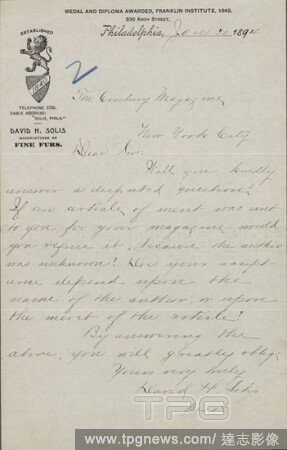 MEDAL AND DIPLOMA AWARDED, FRANKLIN INSTITUTE, 1845.
930 ARCH STREET,
Philadelphia, Jan 20 1894
ESTABLISHED
TELEPHONE 3755.
CABLE ADDRESS:
"SOLIS, PHILA."
DAVID H. SOLIS
MANUFACTURER OF
FINE FURS.
2
The Century Magazine
New York City
Dear Sir:
Will you kindly
answer a disputed question?
If an article of merit was sent
to you for your magazine would
you refuse it, because the author
was unknown? Does your accept-
ance depend upon the
name of the author, or upon
the merit of the article?
By answering the
above, you will greatly oblige
Yours very truly
David H. Solis
TPG
www.tpgnews.com / 達志影像